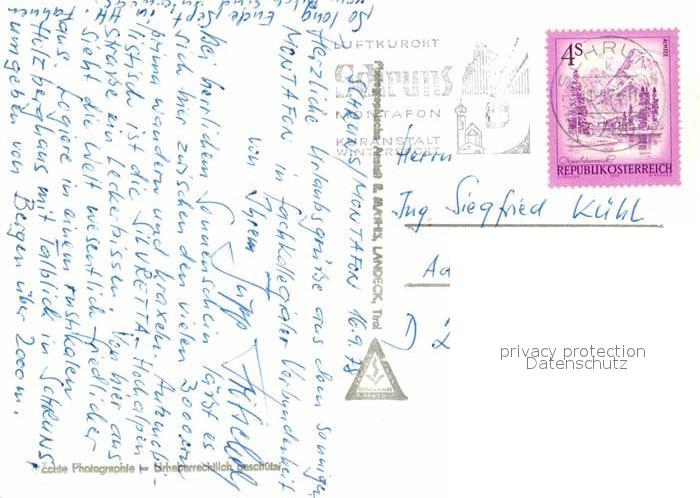 SCHRUNS/MONTAFON 16.9.78
Herzliche Urlaubsgrüße aus dem sonnigen
MONTAFON in fachkollegialer Verbundenheit
von Ihrem Supp
Bei herrlichem Sonnenschein läßt es
sich hier zwischen den vielen 3000ern
prima wandern und kraxeln. Automobi-
listisch ist die SILVRETTA-Hochalpen-
Straße ein Leckerbissen. Von hier aus
sieht die Welt wesentlich friedlicher
aus. Logiere in einem rustikalen
Holzberghaus mit Talblick in Schruns,
umgeben von Bergen über 2000 m.
so long Ende Sept. in HH.
LUFTKURORT
Schruns
MONTAFON
KURANSTALT
WINTERSPORT
SCHRUNS
4S
ALMSEE
REPUBLIK ÖSTERREICH
Herrn
Ing. Siegfried Kühl
Aa
D 2
privacy protection
Datenschutz
Photographische Anstalt R. MATHIS, LANDECK, Tirol
Echte Photographie — Urheberrechtlich geschützt